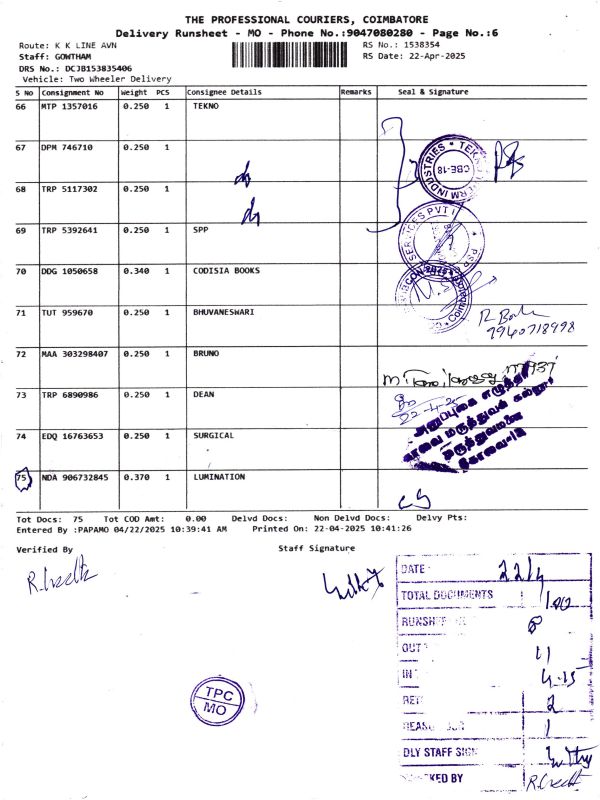 THE PROFESSIONAL COURIERS, COIMBATORE
Delivery Runsheet - MO - Phone No.:9047080280 - Page No.:6
Route: K K LINE AVN
RS No.: 1538354
Staff: GOWTHAM
RS Date: 22-Apr-2025
DRS No.: DCJB153835406
Vehicle: Two Wheeler Delivery
S No Consignment No Weight PCS Consignee Details Remarks Seal & Signature
66 MTP 1357016 0.250 1 TEKNO
67 DPM 746710 0.250 1
68 TRP 5117302 0.250 1
69 TRP 5392641 0.250 1 SPP
70 DDG 1050658 0.340 1 CODISIA BOOKS
71 TUT 959670 0.250 1 BHUVANESWARI
72 MAA 303298407 0.250 1 BRUNO
73 TRP 6890986 0.250 1 DEAN
74 EDQ 16763653 0.250 1 SURGICAL
75 NDA 906732845 0.370 1 LUMINATION
CBE-18
SERVICES PVT
22-4-25
அனுப்புகை எழுத்தர்
கோவை மருத்துவக் கல்லூரி
மருத்துவமனை
கோவை-18
Tot Docs: 75 Tot COD Amt: 0.00 Delvd Docs: Non Delvd Docs: Delvy Pts:
Entered By :PAPAMO 04/22/2025 10:39:41 AM Printed On: 22-04-2025 10:41:26
Verified By
Staff Signature
TPC
MO
DATE 22/4
TOTAL DOCUMENTS 100
RUNSH
OUT 11
IN 4.15
RET 2
REAS 1
DLY STAFF SIGN
KED BY